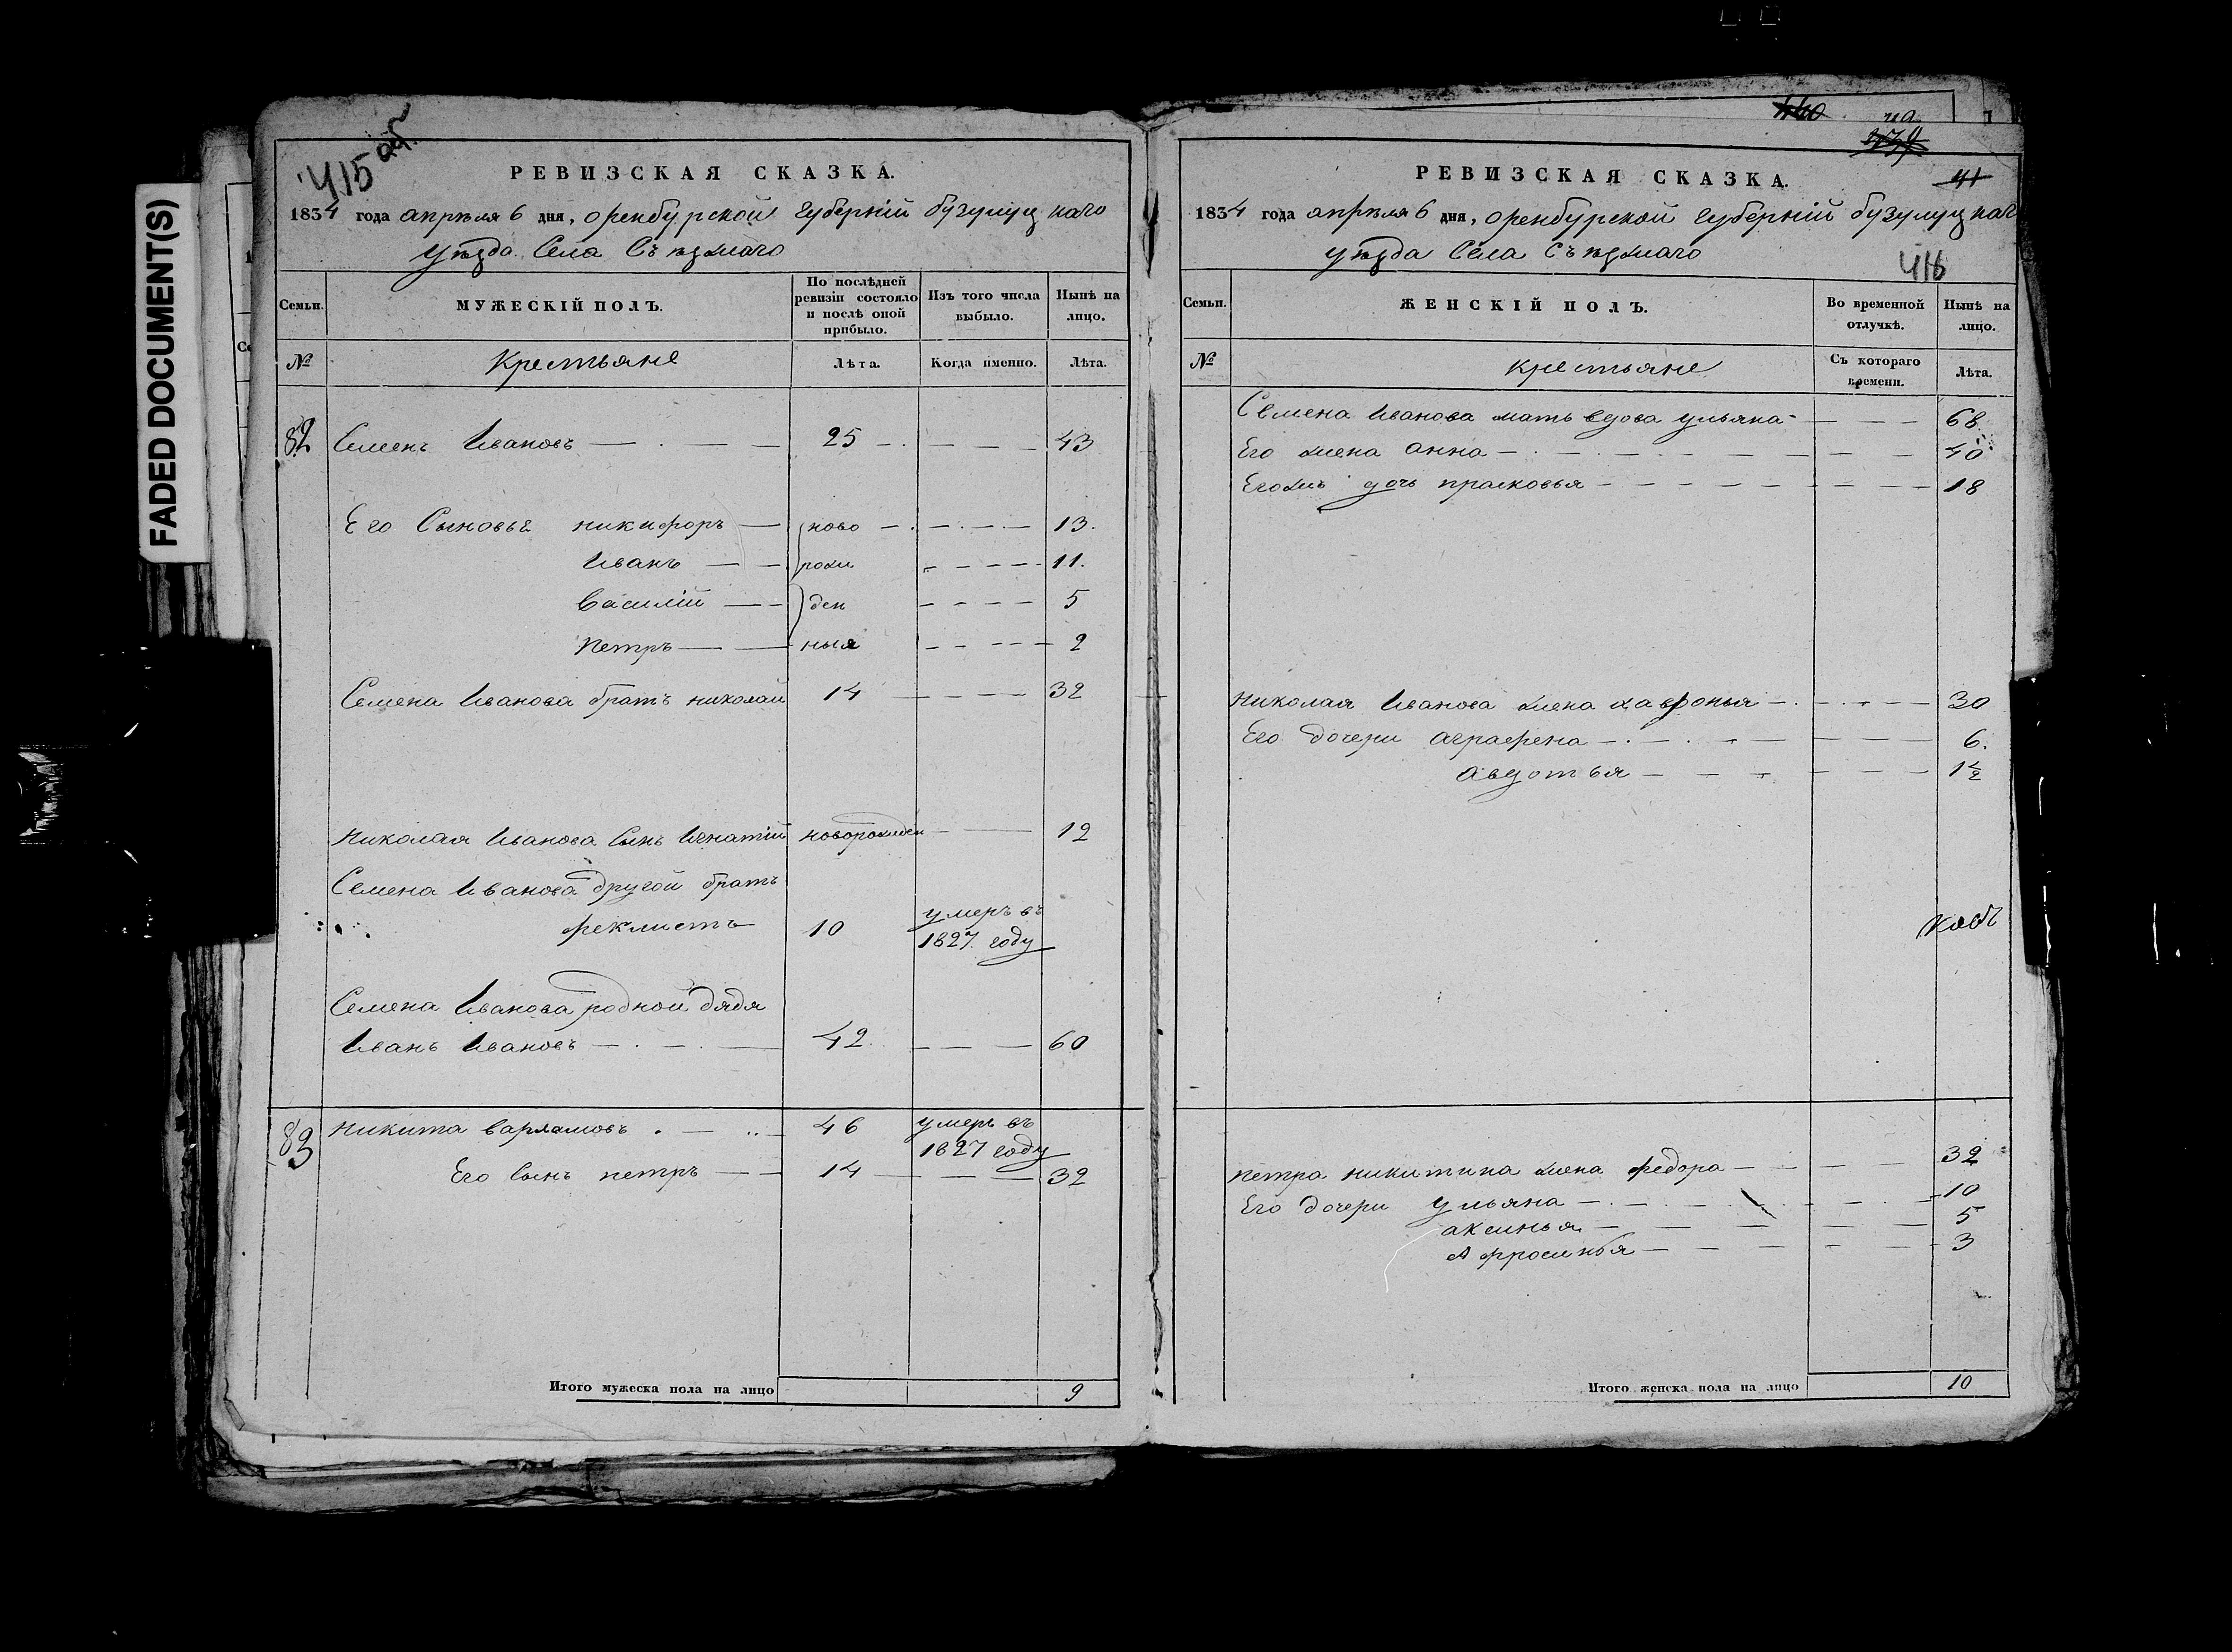 FADED DOCUMENT(S)
415 об.
РЕВИЗСКАЯ СКАЗКА.
1834 года апреля 6 дня, оренбурской губерніи бузулуцкаго
уѣзда Села Съѣзжаго
Семьи.
МУЖЕСКІЙ ПОЛЪ.
По послѣдней ревизіи состояло и послѣ оной прибыло.
Изъ того числа выбыло.
Нынѣ на лицо.
№
Крестьяне
Лѣта.
Когда именно.
Лѣта.
82 Семенъ Ивановъ — 25 — 43
Его Сыновья никифоръ — ново — 13.
Иванъ — рожи — 11.
Василій — ден — 5
Петръ — ныя — 2
Семена Иванова братъ николай 14 — 32
Николая Иванова Сынъ Игнатій новорожден — 12
Семена Иванова другой братъ
феклистъ 10 умеръ въ
1827 году
Семена Иванова родной дядя
Иванъ Ивановъ — 42 — 60
83 Никита варламовъ — 46 умеръ въ
1827 году
Его Сынъ петръ — 14 — 32
Итого мужеска пола на лицо 9
440
РЕВИЗСКАЯ СКАЗКА.
41
1834 года апреля 6 дня, оренбурской губерніи бузулуцкаго
уѣзда Села Съѣзжаго
416
Семьи.
ЖЕНСКІЙ ПОЛЪ.
Во временной отлучкѣ.
Нынѣ на лицо.
№
крестьяне
Съ котораго времени.
Лѣта.
Семена Иванова мать вдова ульяна — 68
Его жена анна — 40
Егожъ дочь прасковья — 18
Николая Иванова жена хавронья — 30
Его дочери аграфена — 6.
авдотья — 1½
Петра никитина жена федора — 32
Его дочери ульяна — 10
аксинья — 5
Афросинья — 3
Итого женска пола на лицо 10